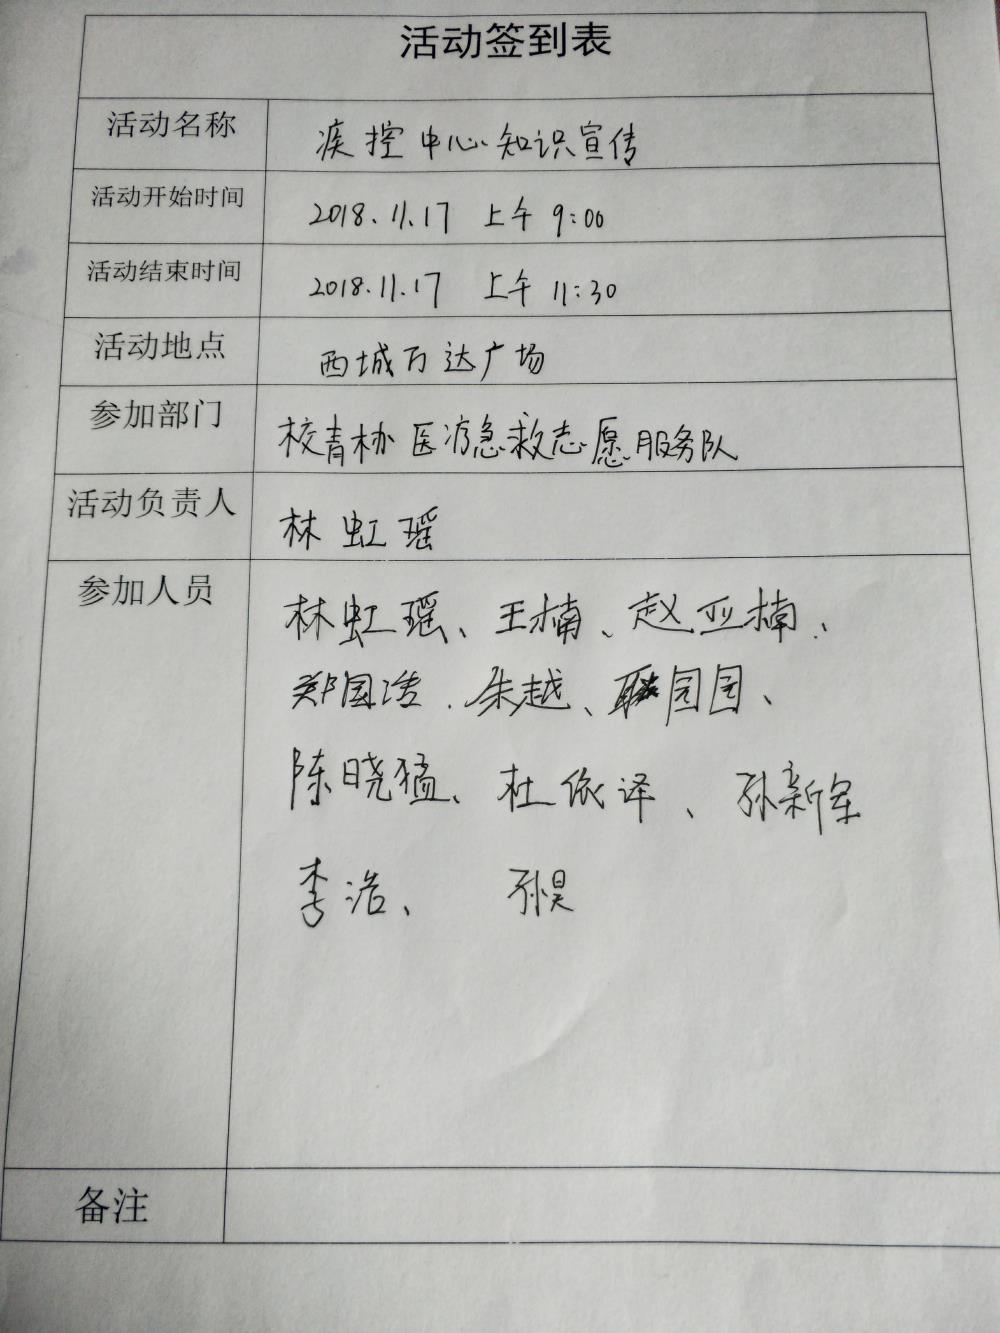 活动签到表
活动名称 疾控中心知识宣传
活动开始时间 2018.11.17 上午 9:00
活动结束时间 2018.11.17 上午 11:30
活动地点 西城万达广场
参加部门 校青协医疗急救志愿服务队
活动负责人 林虹瑶
参加人员 林虹瑶、王楠、赵亚楠、
郑国浩、朱越、园园、
陈晓猛、杜依译、孙新军
李浩、 孙昊
备注